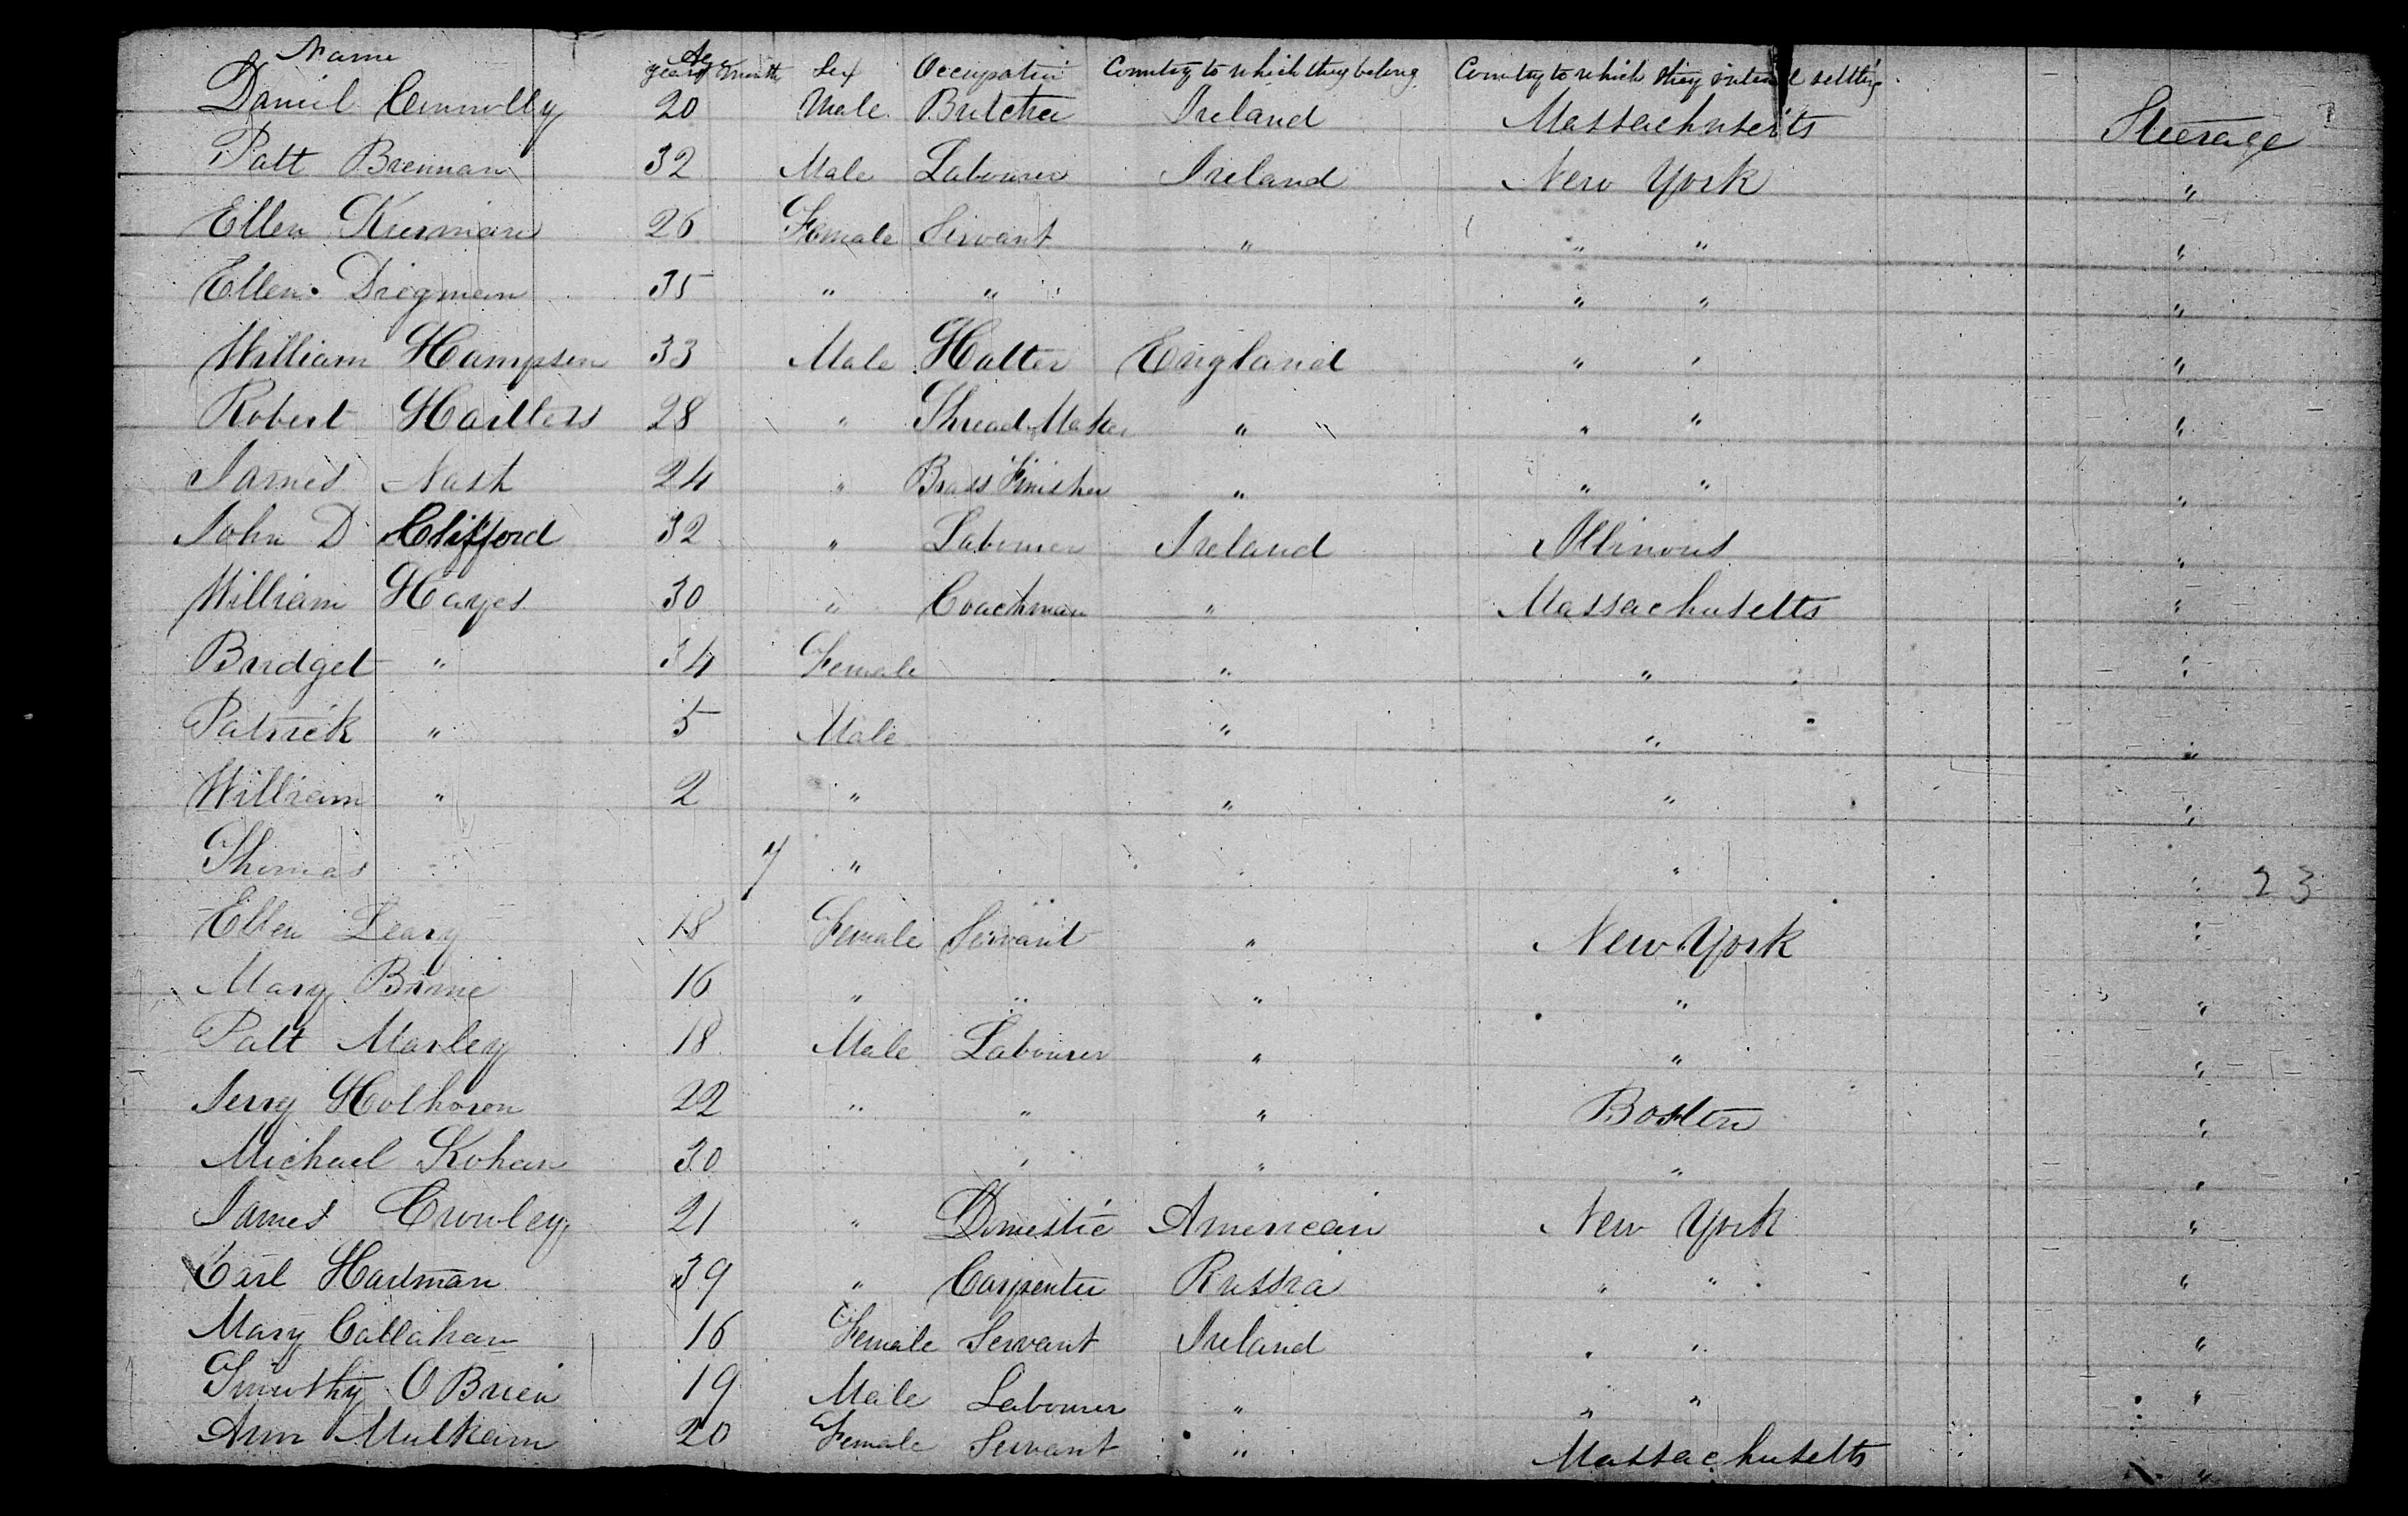 Name Age years month Sex Occupation Country to which they belong Country to which they intend settling
Daniel Connolly 20 Male Butcher Ireland Massachusetts Steerage
Patt Brennan 32 Male Labourer Ireland New York "
Ellen Kiernan 26 Female Servant " " " "
Ellen Diegman 35 " " " " "
William Hampson 33 Male Hatter England " " "
Robert 28 " Thread Maker " " " "
James Nash 24 " Brass Finisher " " " "
John D Clifford 32 " Labourer Ireland Illinois "
William Hayes 30 " Coachman " Massachusetts "
Bridget " 34 Female " " "
Patrick " 5 Male " " "
William " 2 " " " "
Thomas 7 " " " 23
Ellen Leary 18 Female Servant " New York "
Mary 16 " " " " "
Patt Marley 18 Male Labourer " " "
Jerry Holhoron 22 " " " Boston "
Michael Kohan 30 " " " "
James Crowley 21 " Domestic American New York "
Carl Hartman 39 " Carpenter Russia " " "
Mary Callahan 16 Female Servant Ireland " " "
Timothy O Brien 19 Male Labourer " " " "
Ann Mulkern 20 Female Servant " Massachusetts "